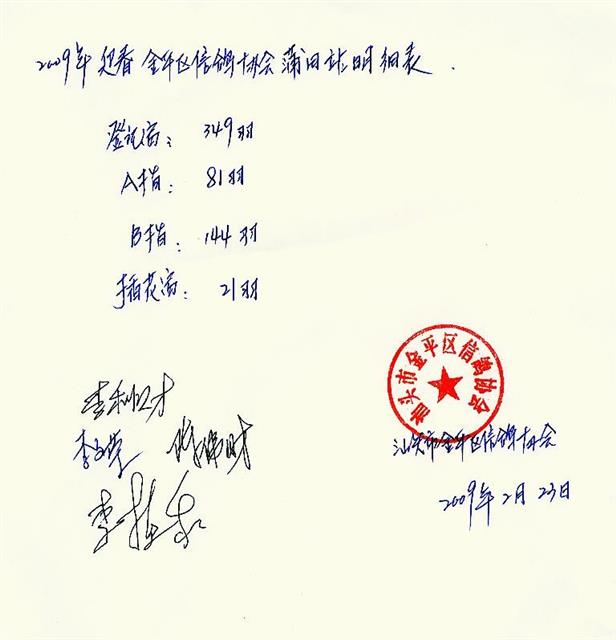 2009年迎春金平区信鸽协会莆田站明细表.
登记鸽: 349羽
A指: 81羽
B指: 144羽
插花鸽: 21羽
汕头市金平区信鸽协会
汕头市金平区信鸽协会
2009年2月23日